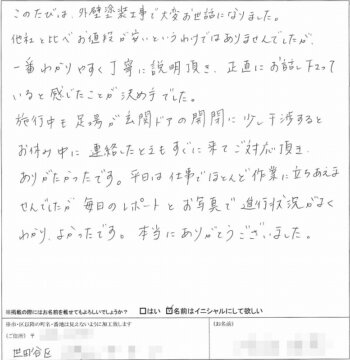 このたびは、外壁塗装工事で大変お世話になりました。
他社と比べお値段が安いというわけではありませんでしたが、
一番わかりやすく丁寧に説明頂き、正直にお話し下さって
いると感じたことが決め手でした。
施行中も足場が玄関ドアの開閉に少し干渉すると
お休み中に連絡したときもすぐに来てご対応頂き、
ありがたかったです。平日は仕事でほとんど作業に立ちあえま
せんでしたが毎日のレポートとお写真で進行状況がよく
わかり、よかったです。本当にありがとうございました。
※掲載の際にはお名前を載せてもよろしいでしょうか? □はい ☑名前はイニシャルにして欲しい
※市・区以降の町名・番地は見えないように加工致します
(ご住所) 〒 (お名前)
世田谷区